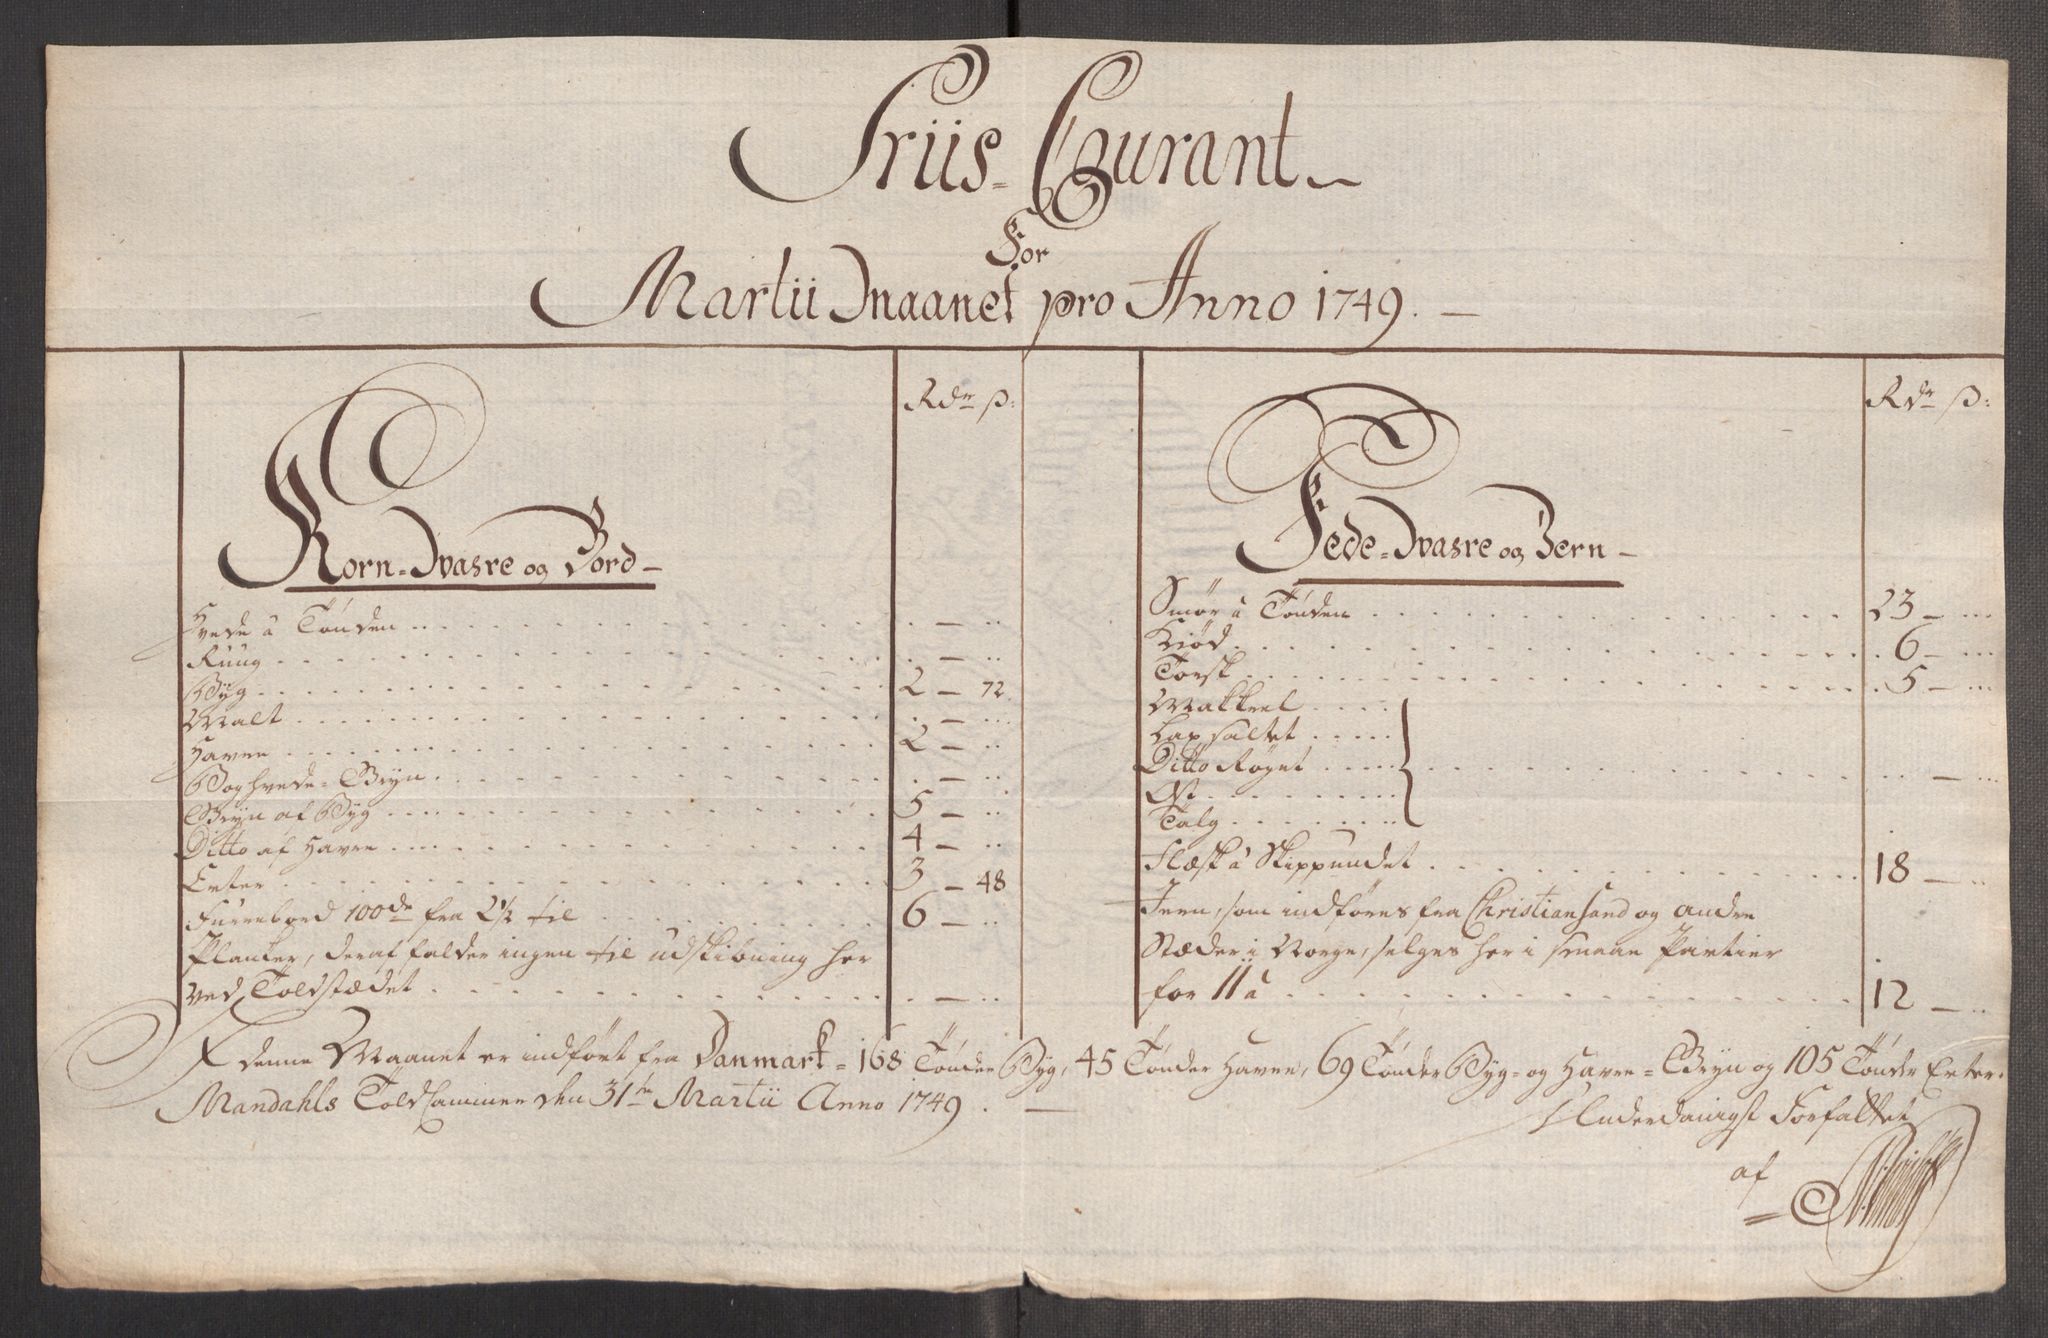 Priis-Courant
For
Martii Maanet pro Anno 1749.
Rdr ß:
Korn-Vahre og Bord
Hvede à Tønden
Ruug
Byg 2 - 72
Malt
Havre 2 -
Boghvede-Gryn
Gryn af Byg 5 -
Ditto af Havre 4 -
Erter 3 - 48
Furrebord 100de fra 2½ til 6 -
Planker, deraf falder ingen til udskibning her
ved Toldstædet
Rdr ß:
Fede-Vahre og Jern
Smør à Tønden 23 -
Kiød 6 -
Torsk 5 -
Makkrel
Lax saltet
Ditto Røget
Ost
Talg
Flæsk à Skippundet 18 -
Jern, som indføres fra Christiansand og andre
Stæder i Norge, selges her i smaae Partier
for 11 à 12 -
I denne Maanet er indført fra Danmark - 168 Tønder Byg, 45 Tønder Havre, 69 Tønder Byg- og Havre-Gryn og 105 Tønder Erter.
Mandahls Toldcammer den 31te Martii Anno 1749.
Underdanigst Forfattet
af